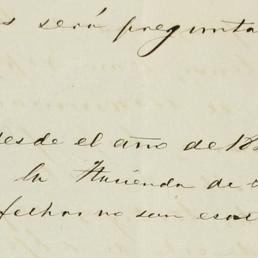 s será pregunta
desde el año de 18
la Hacienda de
fechas no son exac